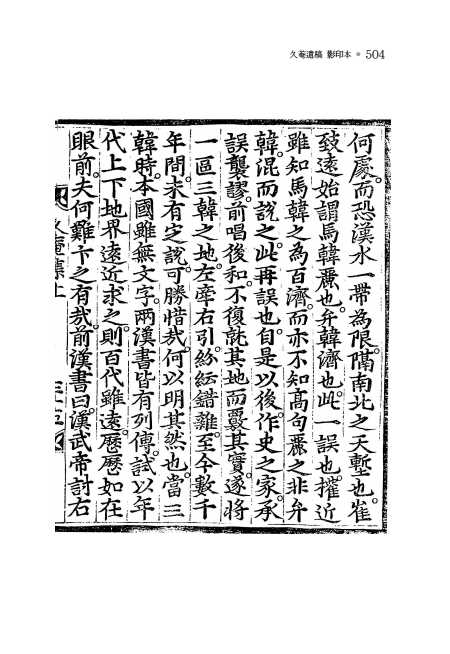 久菴遺稿 影印本 ● 504
何處。而恐漢水一帶為限隔南北之天塹也。崔
致遠始謂馬韓麗也。弁韓濟也。此一誤也。㩁近
雖知馬韓之為百濟。而亦不知高句麗之非弁
韓。混而說之。此再誤也。自是以後。作史之家。承
誤襲謬。前唱後和。不復詰其地而覈其實。遂將
一區三韓之地。左牽右引。紛紜錯雜。至今數千
年間。未有定說。可勝惜哉。何以明其然也。當三
韓時。本國雖無文字。兩漢書皆有列傳。試以年
代上下地界遠近求之。則百代雖遠。歷歷如在
眼前。夫何難卞之有哉。前漢書曰。漢武帝討右
久菴集上